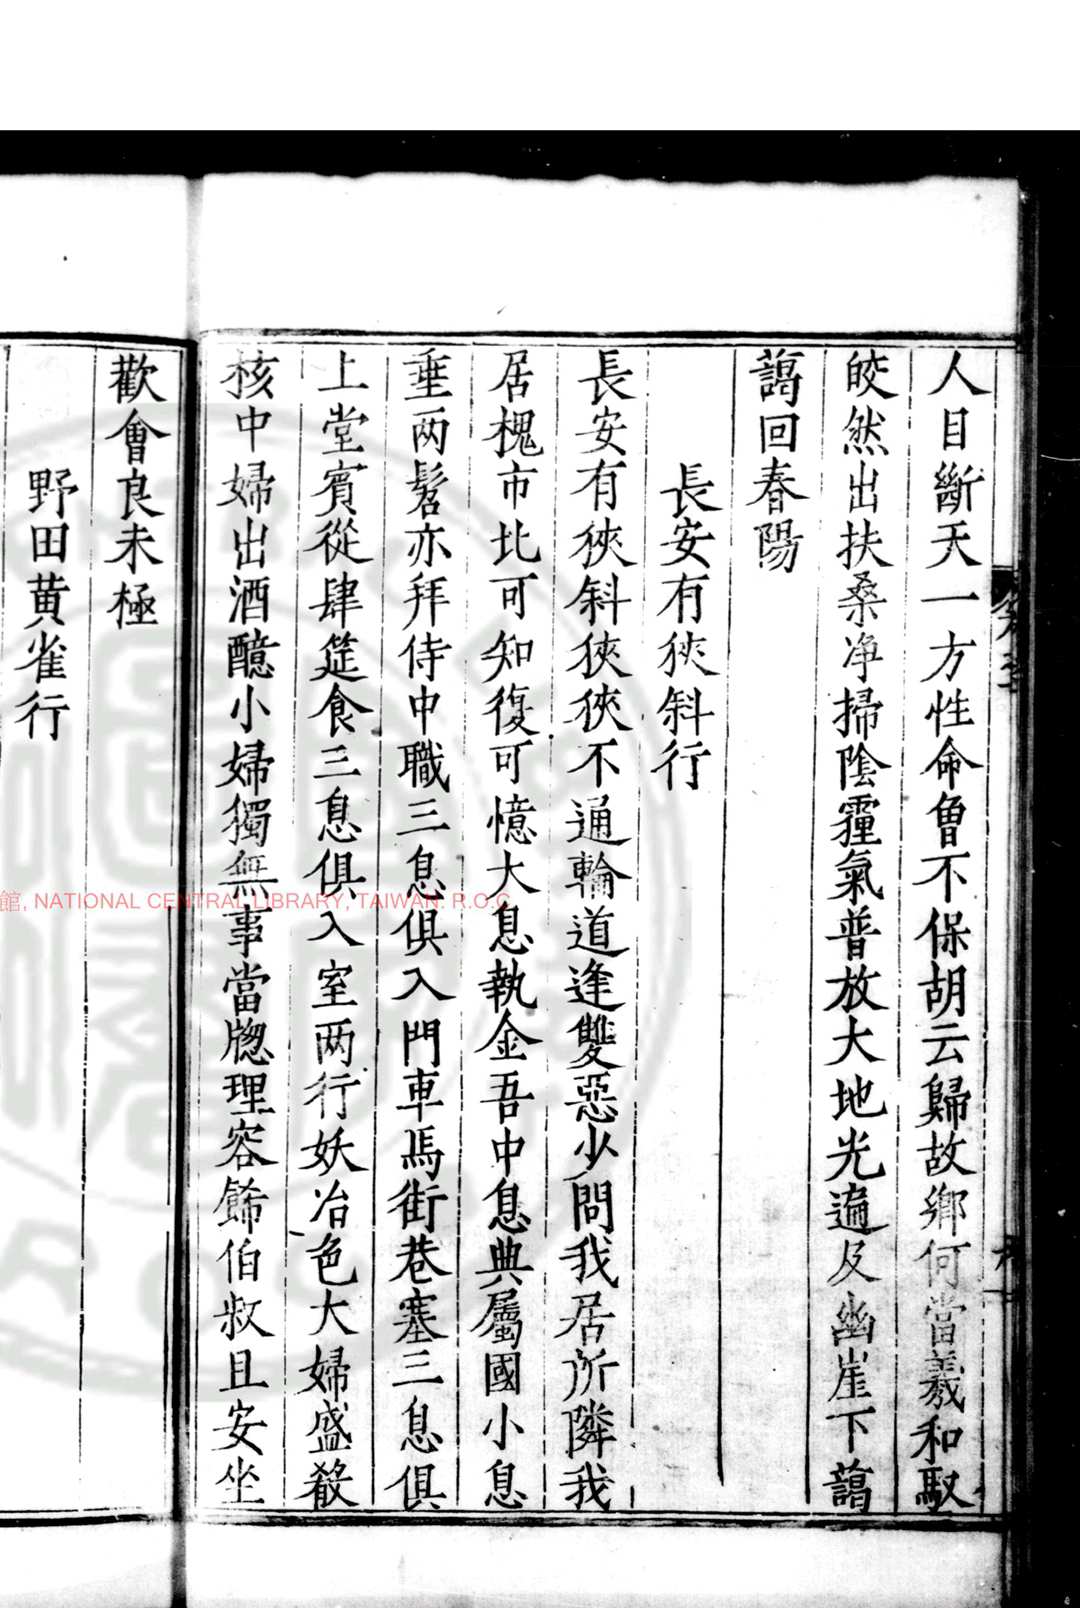 人目斷天一方性命曾不保胡云歸故鄉何當羲和馭
皎然出扶桑净掃陰霾氣普放大地光遍及幽崖下藹
藹回春陽
長安有狹斜行
長安有狹斜狹狹不通輪道逢雙惡少問我居所隣我
居槐市北可知復可憶大息執金吾中息典屬國小息
垂两髫亦拜侍中職三息俱入門車馬街巷塞三息俱
上堂賓從肆筵食三息俱入室两行妖冶色大婦盛殽
核中婦出酒醷小婦獨無事當牕理容餙伯叔且安坐
歡會良未極
野田黄雀行
館, NATIONAL CENTRAL LIBRARY, TAIWAN. R.O.C